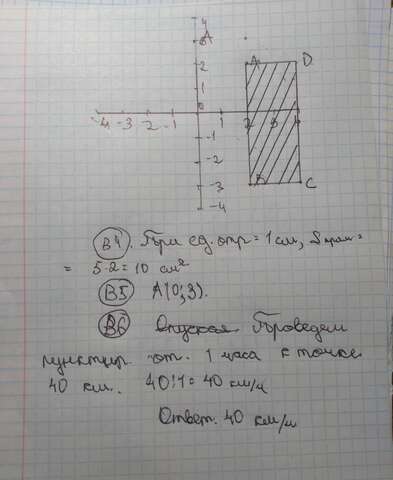 4
A
3
2 A D
1
0
-4 -3 -2 -1 1 2 3 4
-1
-2
-3 B C
-4
В4. При ед. отр = 1 см, Sпрям =
= 5·2 = 10 см²
В5 А(0; 3).
В6 Проведем
пунктир от 1 часа к точке
40 км. 40:1 = 40 км/ч
Ответ. 40 км/ч